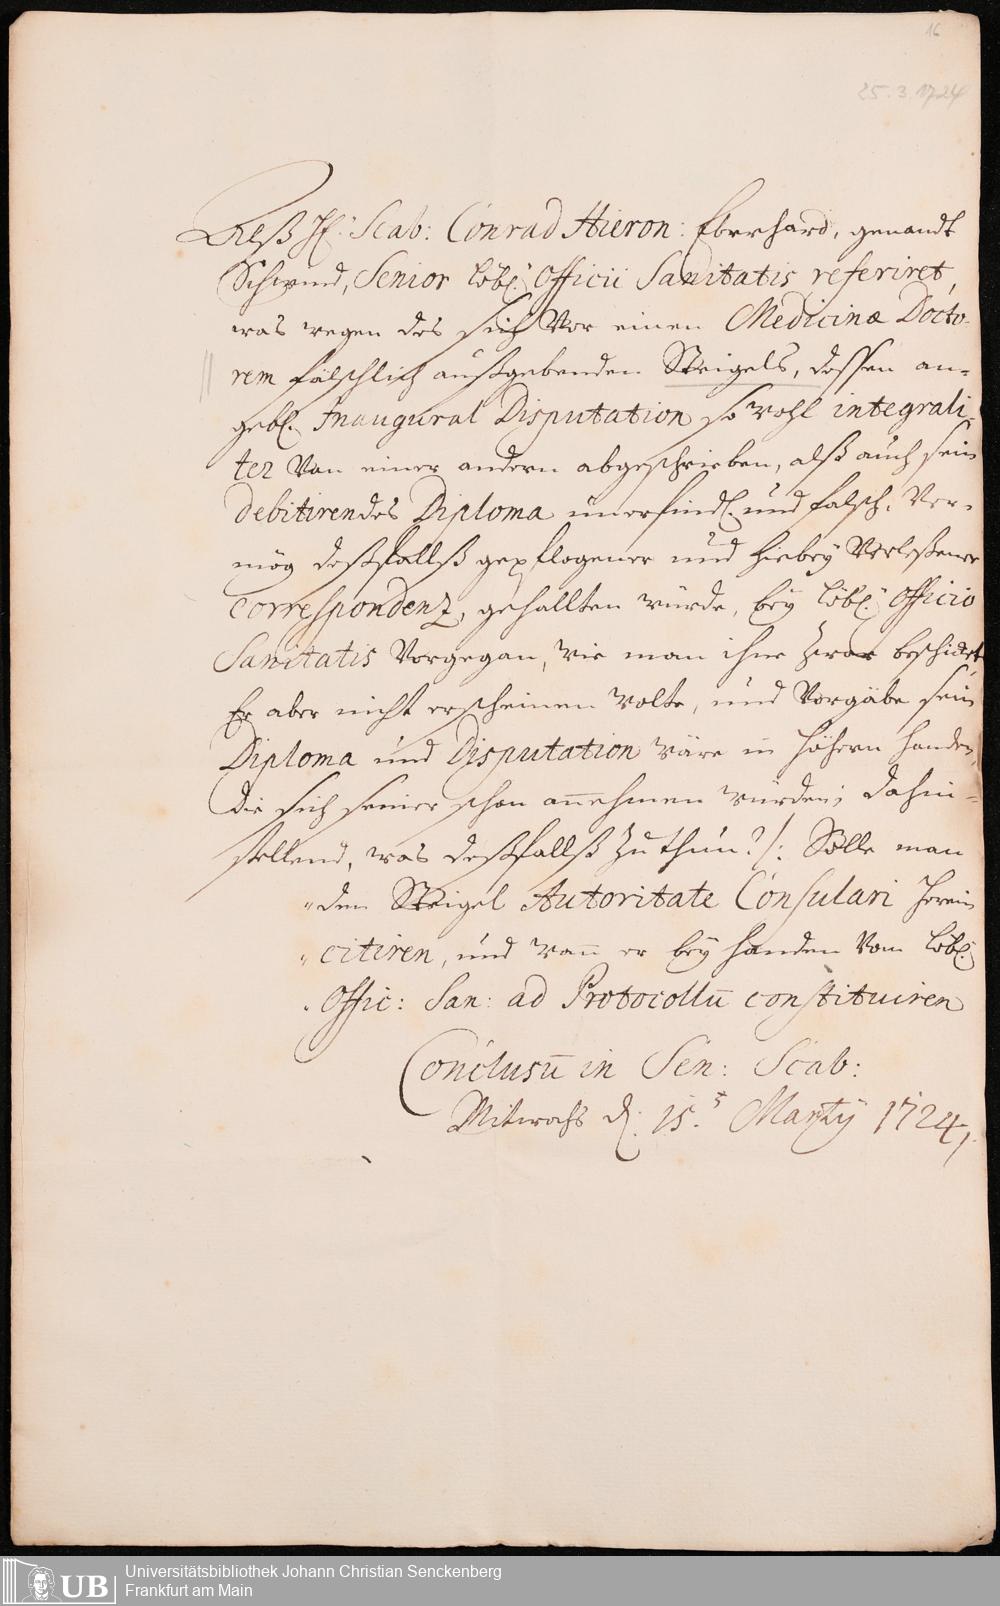 16
25.3.1724
Alß H: Scab: Conrad Hieron: Eberhard, genandt
Schwind, Senior löbl: Officii Sanitatis referiret,
was wegen des sich Vor einen Medicinæ Docto-
rem fälschlich außgebenden Steigels, dessen an-
gebl. Inaugural Disputation so wohl integrali-
ter Von einer andern abgeschrieben, alß auch sein
debitirendes Diploma unerfindl. und falsch, Ver-
mög deßfallß gepflogener und hiebey Verleßener
Correspondenz, gehallten würde, bey löbl: Officio
Sanitatis Vorgegan, wie man ihne zwar beschicket,
Er aber nicht erscheinen wolte, und Vorgäbe sein
Diploma und Disputation wäre in höhern handen,
die sich seiner schon annehmen würden; dahin-
stellend, was deßfallß zu thun? /: Solle man
" den Steigel Autoritate Consulari herein
" citiren, und wan̄ er bey handen Vom löbl:
. Offic: San: ad Protocollū constituiren
Conclusū in Sen: Scab:
Mitwochs d. 15.t Martÿ 1724.
UB
Universitätsbibliothek Johann Christian Senckenberg
Frankfurt am Main